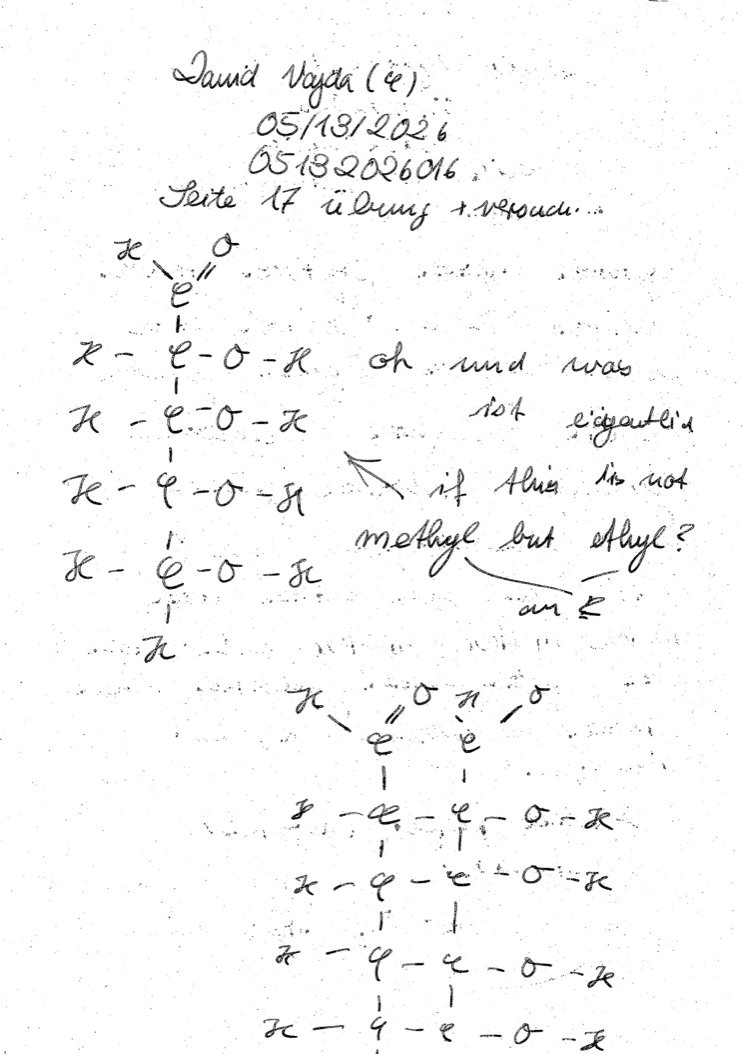 David Vajda (C)
05/13/2026
05132026016
Seite 17 übung + versuch...
H O
C
H - C - O - H oh und was
H - C - O - H ist eigentlich
H - C - O - H if this is not
methyl but ethyl?
H - C - O - H
an C
H
H O H O
C C
H - C - C - O - H
H - C - C - O - H
H - C - C - O - H
H - C - C - O - H